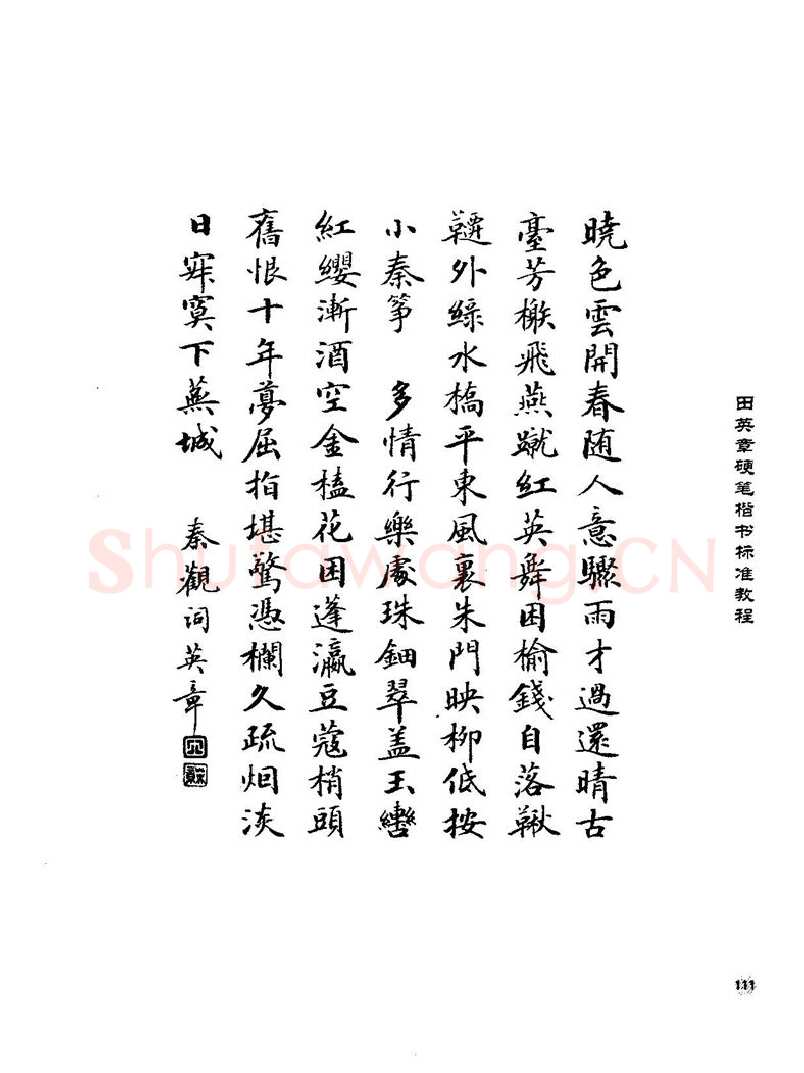 曉色雲開春随人意驟雨才過還晴古
臺芳榭飛燕蹴紅英舞困榆錢自落鞦
韆外緑水橋平東風裏朱門映柳低按
小秦筝 多情行樂處珠鈿翠盖玉轡
紅纓漸酒空金榼花困蓬瀛豆蔻梢頭
舊恨十年夢屈指堪驚憑欄久疏烟淡
日寂寞下蕪城 秦觀词英章
田英章硬笔楷书标准教程
111
Shufawang.CN